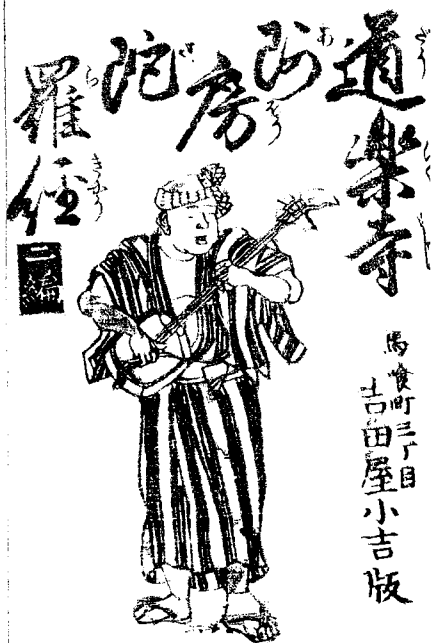 道樂寺
阿房
陀
羅經
二編
馬喰町三丁目
吉田屋小吉版